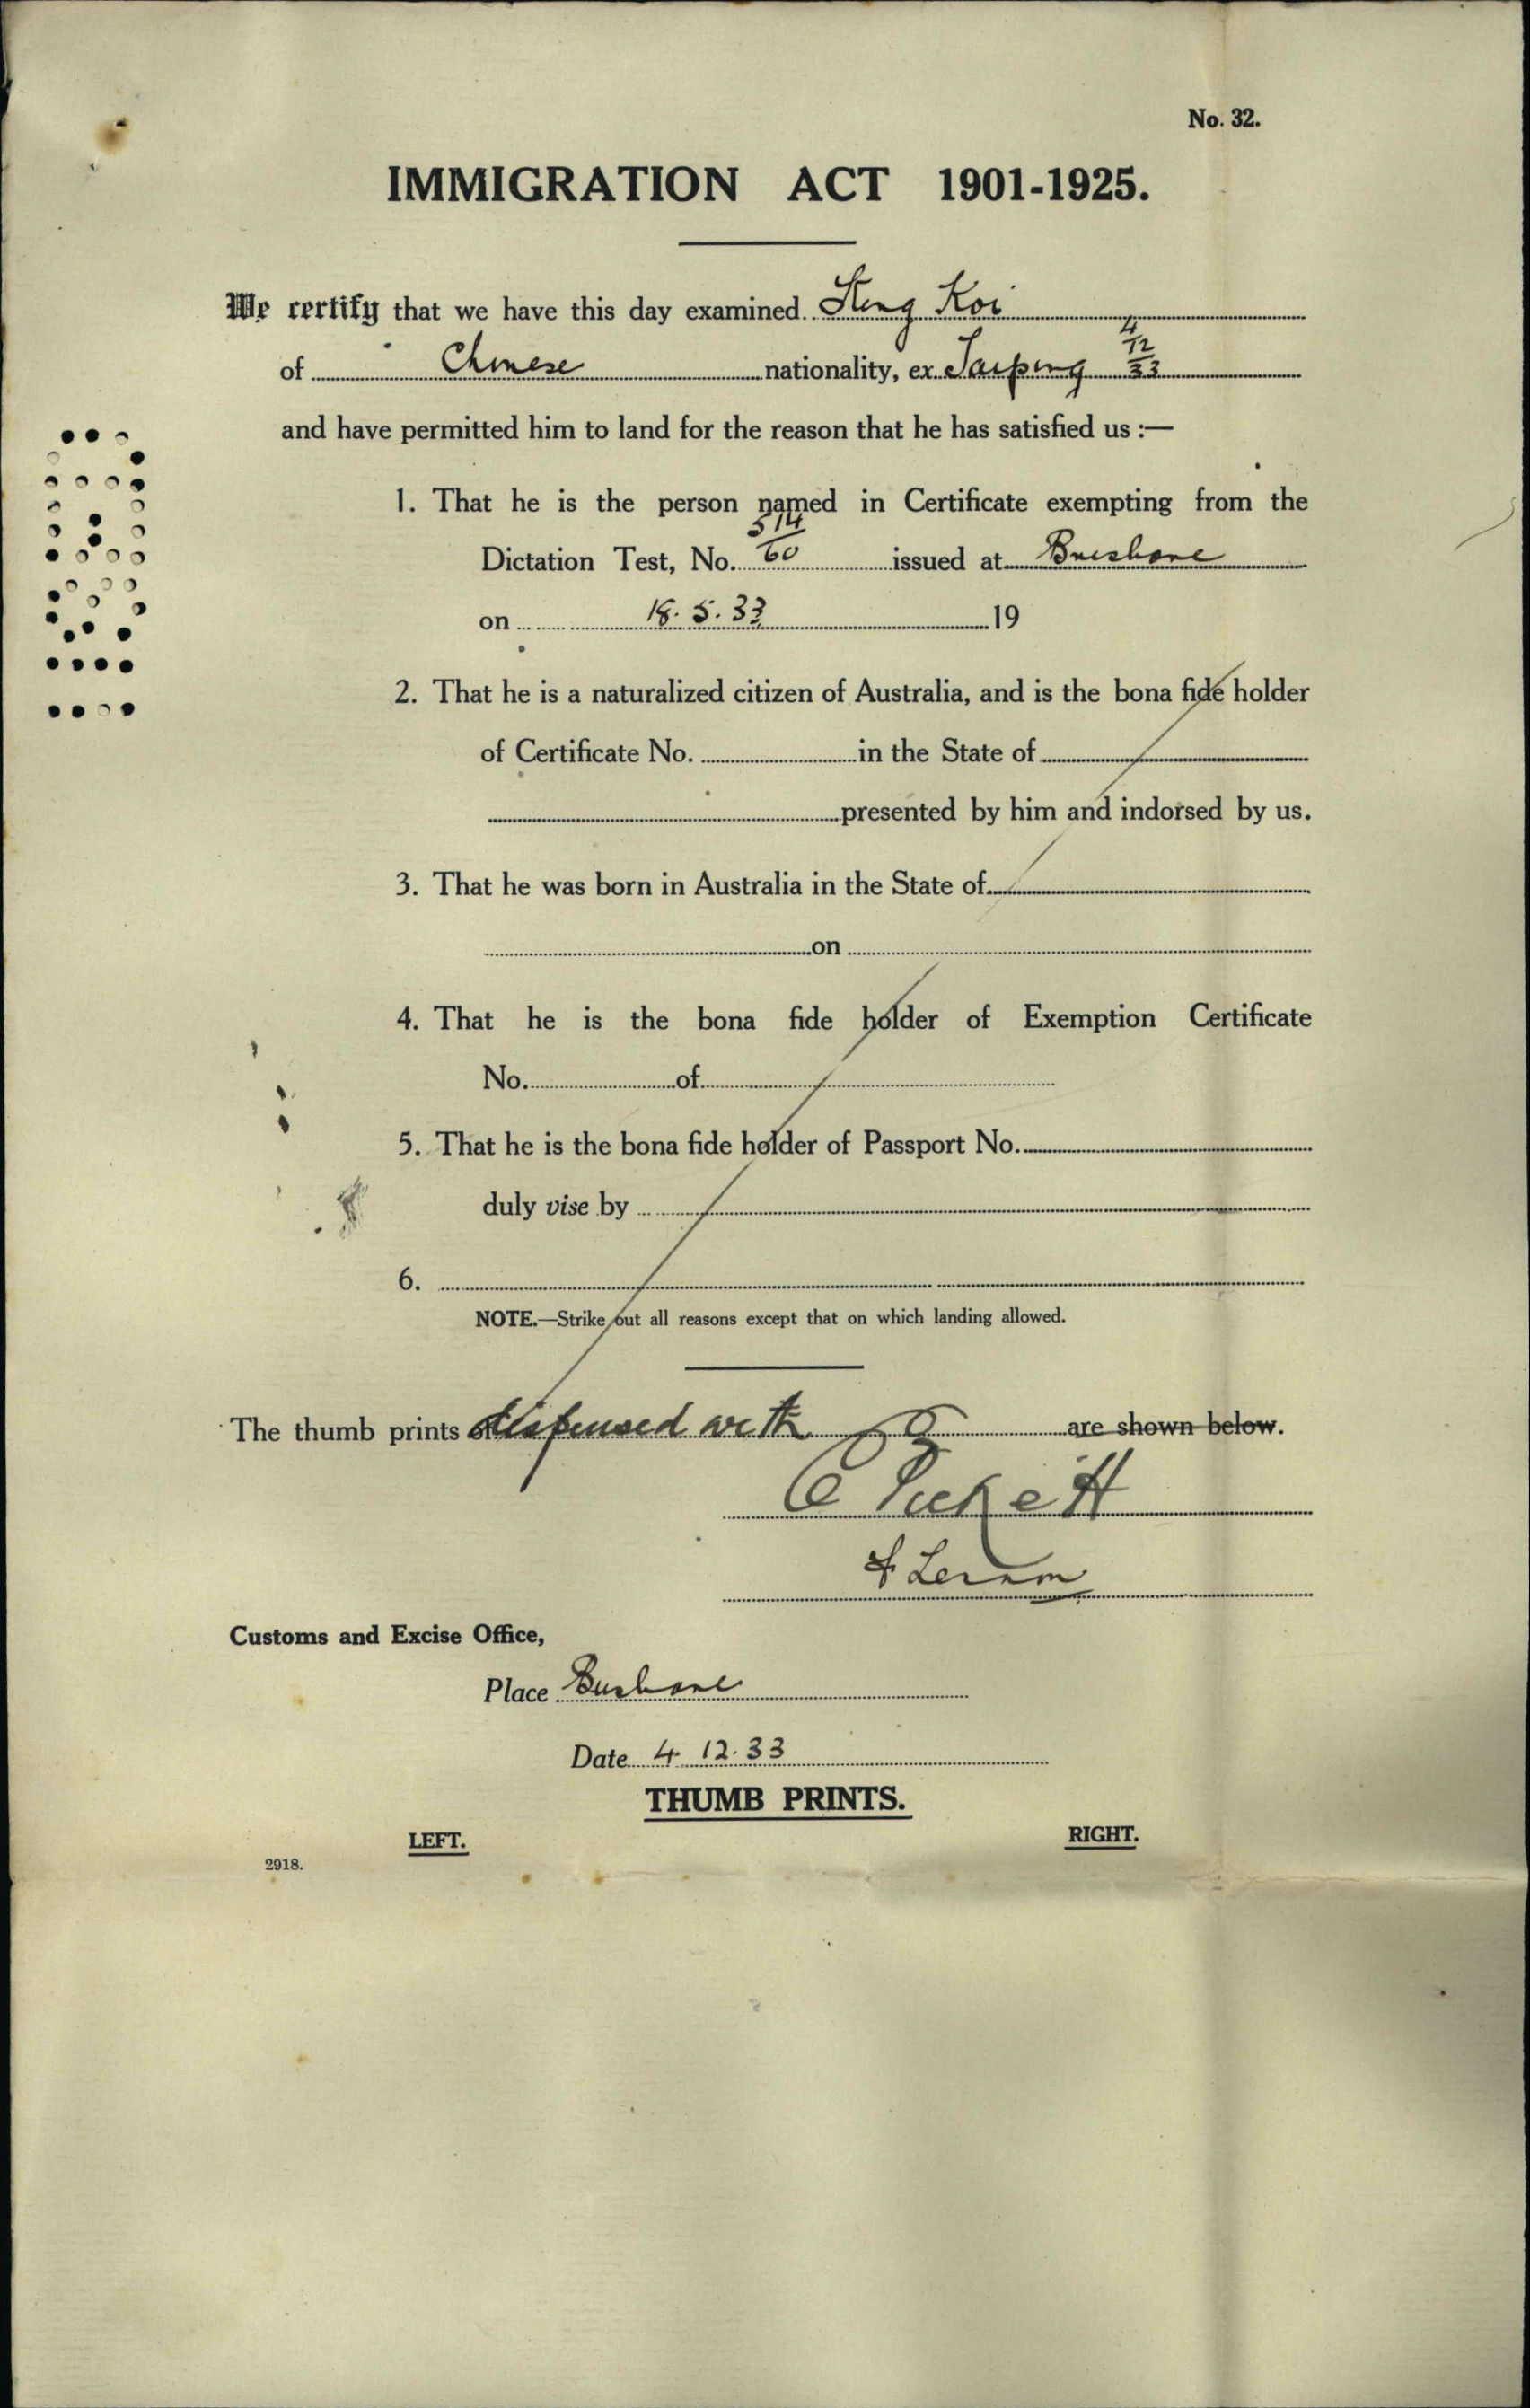 No. 32.
IMMIGRATION ACT 1901-1925.
We certify that we have this day examined Koi
of Chinese nationality, ex Taiping 4/12/33
and have permitted him to land for the reason that he has satisfied us :—
1. That he is the person named in Certificate exempting from the
Dictation Test, No. 514/60 issued at Brisbane
on 18.5.33 19
2. That he is a naturalized citizen of Australia, and is the bona fide holder
of Certificate No. in the State of
presented by him and indorsed by us.
3. That he was born in Australia in the State of
on
4. That he is the bona fide holder of Exemption Certificate
No. of
5. That he is the bona fide holder of Passport No.
duly vise by
6.
NOTE.—Strike out all reasons except that on which landing allowed.
The thumb prints dispensed with are shown below.
Customs and Excise Office,
Place Brisbane
Date 4.12.33
THUMB PRINTS.
LEFT. RIGHT.
2918.